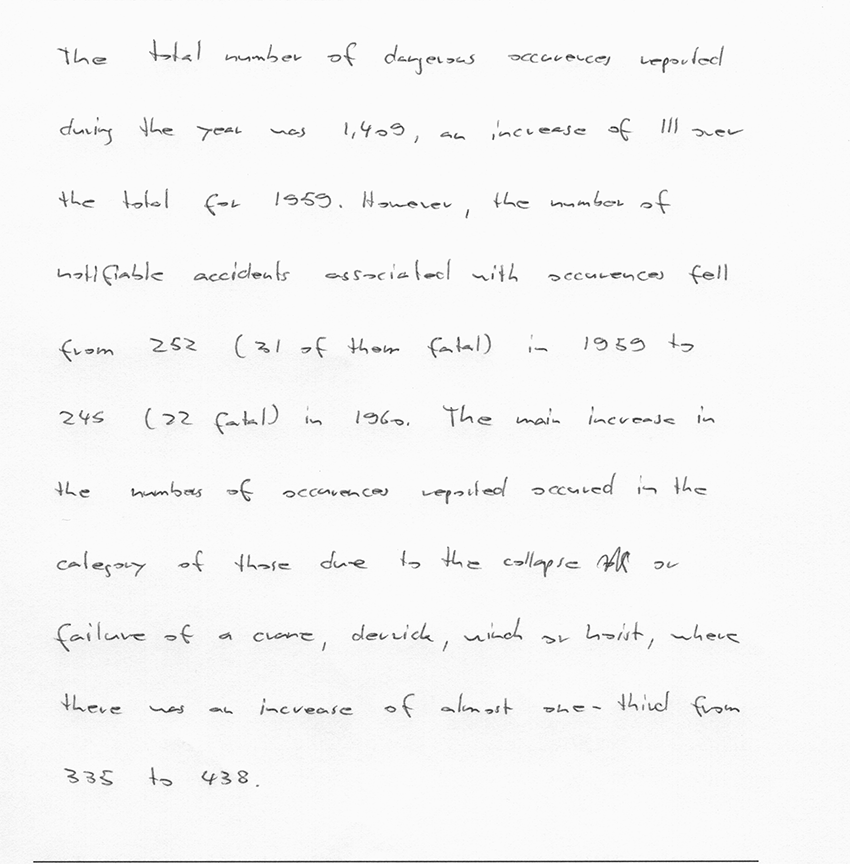 The total number of dangerous occurences reported
during the year was 1,409, an increase of 111 over
the total for 1959. However, the number of
notifiable accidents associated with occurences fell
from 252 (31 of them fatal) in 1959 to
245 (22 fatal) in 1960. The main increase in
the number of occurences reported occured in the
category of those due to the collapse or
failure of a crane, derrick, winch or hoist, where
there was an increase of almost one-third from
335 to 438.